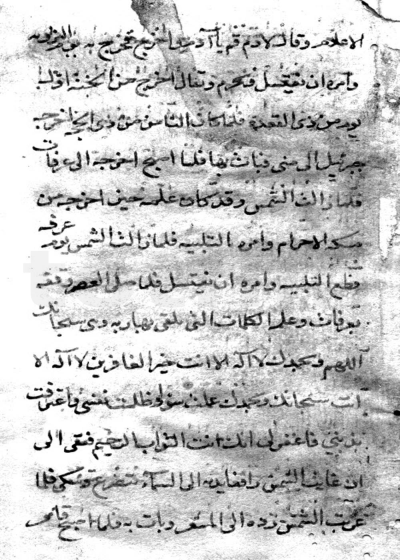 الاعلام وقال لادم قم يا آدم فخرج به يوم التروية
وامره ان يغتسل ويحرم
يوم من ذى القعدة فلما كان الثامن من ذى الحجة اخرجه
جبرئيل الى منى فبات بها فلما اصبح اخرجه الى عرفات
فلما زالت الشمس وقد كان علمه حين اخرجه من
مكة الاحرام وامره التلبية فلما زالت الشمس يوم عرفة
قطع التلبية وامره ان يغتسل فلما صلى العصر وقفه
بعرفات وعلمه الكلمات التى تلقى بها ربه وهى سبحانك
اللهم وبحمدك لا اله الا انت خير الغافرين لا اله الا
انت سبحانك وبحمدك عملت سوء وظلمت نفسى فاعترفت
بذنبى فاغفر لى انك انت التواب الرحيم فبقى الى
ان غابت الشمس رافعا يديه الى السماء يتضرع ويبكى فلما
غربت الشمس رده الى المشعر وبات به فلما اصبح قام